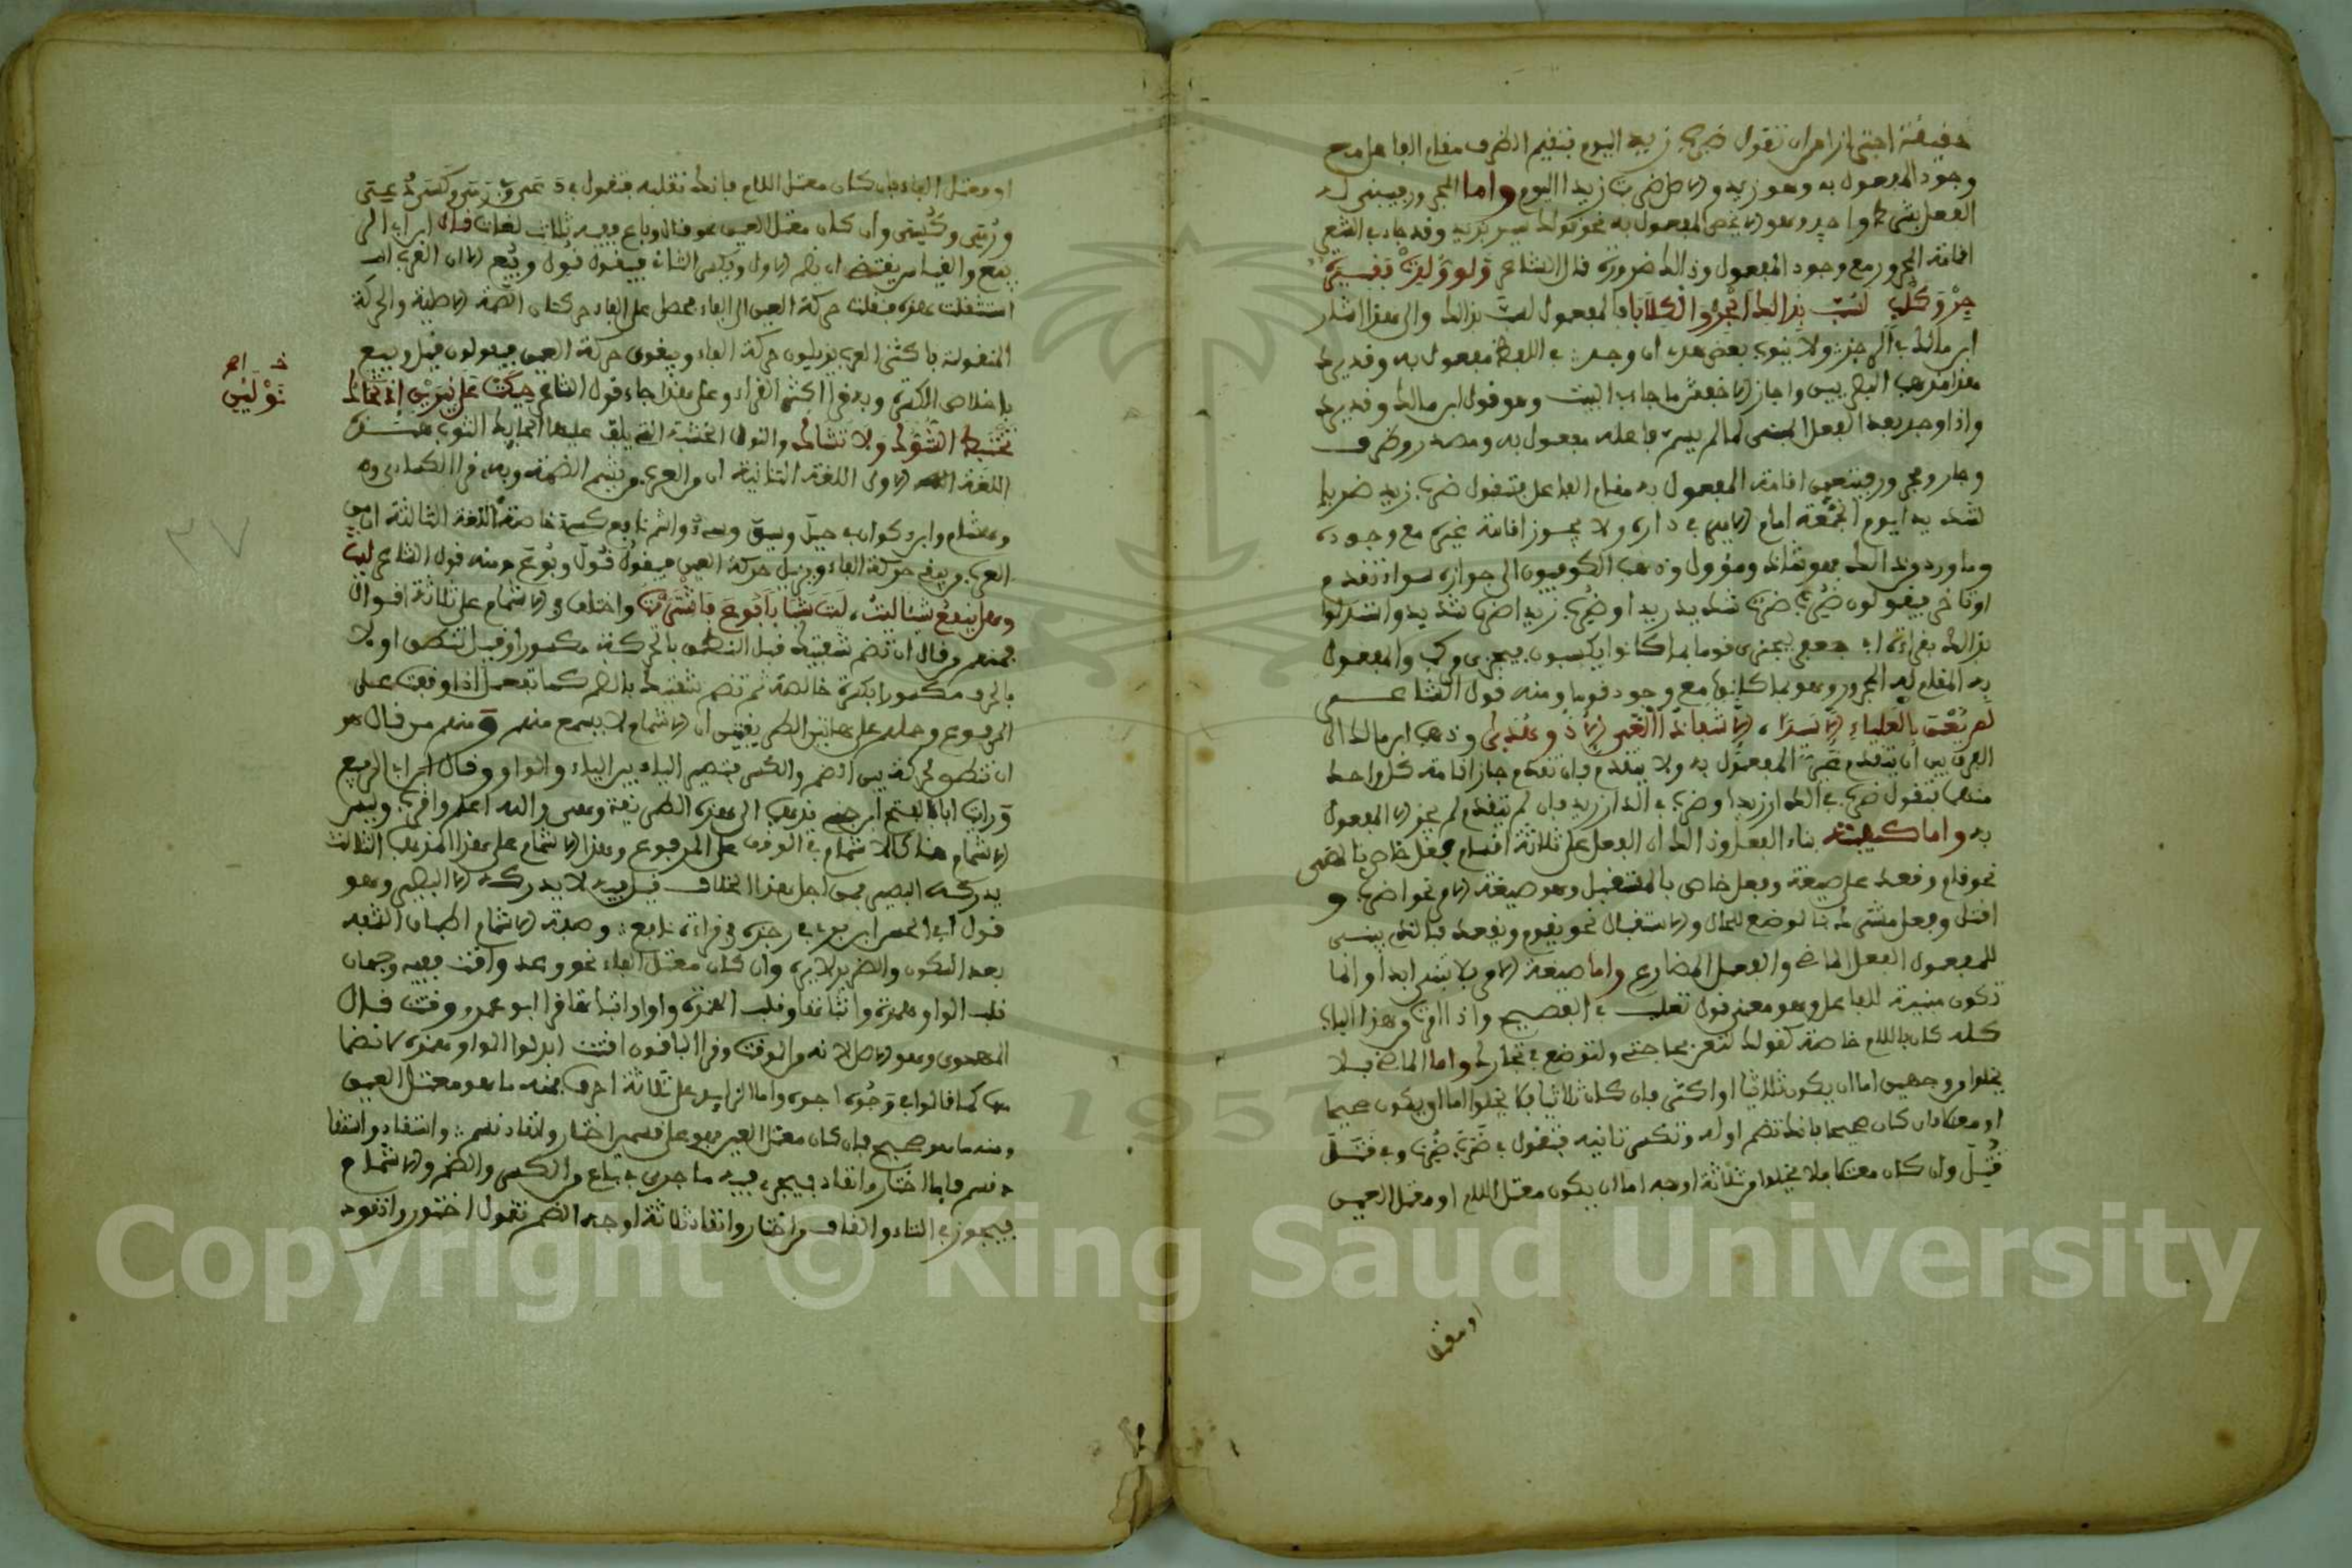 حقيقة اجتزا من ان تقول ضرب زيد اليوم فتقيم الظرف مقام الفاعل مع
وجود المفعول به وهو زيد والاصل ضربت زيدا اليوم واما المجرور فيبنى له
الفعل بشرط واحد وهو الا يحضر المفعول به نحو قولك سير بزيد وقد جاء في الشعر
اقامة المجرور مع وجود المفعول وذلك ضرورة قال الشاعر ولو ولدت قفيرة
جرو كلب لسب بذلك الجرو الكلابا فالمفعول لسب بذلك والى هذا اشار
ابن مالك في الرجز ولا ينوب بعض هذي ان وجد في اللفظ مفعول به وقد يرد
هذا مذهب البصريين واجاز الاخفش ما جاء في البيت وهو قول ابن مالك وقد يرد
واذا وجد بعد الفعل المبنى لما لم يسم فاعله مفعول به ومصدر وظرف
وجار ومجرور فيتعين اقامة المفعول به مقام الفاعل فتقول ضرب زيد ضربا
شديدا يوم الجمعة امام الامير في داره ولا يجوز اقامة غيره مع وجوده
وما ورد من ذلك فهو شاذ ومؤول وذهب الكوفيون الى جوازه سواء تقدم
او تاخر فيقولون ضرب ضرب شديد زيدا وضرب زيدا ضرب شديد واستدلوا
بذلك بقراءة ابي جعفر ليجزى قوما بما كانوا يكسبون فيجزى مركب والمفعول
به المقام له المجرور وهو بما كانوا مع وجود قوما ومنه قول الشاعر
لم يعن بالعلياء الا سيدا ، الا شفا ذا الغي الا ذو هدى وذهب ابن مالك الى
الفرق بين ان يتقدم غير المفعول به ولا يتقدم فان تقدم جاز اقامة كل واحد
منهما فتقول ضرب في الدار زيدا وضرب في الدار زيد فان لم يتقدم لم يجز الا المفعول
به واما كيفية بناء الفعل وذلك ان الفعل على ثلاثة اقسام فعل خاص بالمضي
نحو قام وقعد على صيغة وفعل خاص بالمستقبل وهو صيغة الامر نحو اضرب و
اقتل وفعل مشترك بالوضع للحال والاستقبال نحو يقوم ويقعد فالذي يبنى
للمفعول الفعل الماضي والفعل المضارع واما صيغة الامر فلا تبنى ابدا وانما
تكون مبنية للفاعل وهو معنى قول ثعلب في الفصيح واذا امرت من هذا الباب
كله كان باللام خاصة كقولك لتعن بحاجتي ولتوضع في تجارتك واما الماضي فلا
يخلوا من وجهين اما ان يكون ثلاثيا او اكثر فان كان ثلاثيا فلا يخلوا اما ان يكون صحيحا
او معتلا فان كان صحيحا فانك تضم اوله وتكسر ثانيه فتقول في ضرب ضرب وفي قتل
قتل وان كان معتلا فلا يخلوا من ثلاثة اوجه اما ان يكون معتل اللام او معتل العين
او معتل
او معتل الفاء فان كان معتل اللام فانك تقلبه فتقول في دعى ورمى وكسى دعي
ورمي وكسي وان كان معتل العين نحو قال وباع ففيه ثلاث لغات قال ابن ابي الر
بيع والقياس يقتضي ان يضم الاول ويكسر الثاني فيقول قول وبيع الا ان العرب
استثقلت هذه فنقلت حركة العين الى الفاء فحصل على الفاء حركتان الضمة الاصلية والحركة
المنقولة فاكثر العرب يزيلون حركة الفاء ويبقون حركة العين فيقولون قيل وبيع
باخلاص الكسرة وبه قرا اكثر القراء وعلى هذا جاء قول الشاعر حيكت على نيرين اذ تحاك
خ اصح
نولين
تختبط الشوك ولا تشاك والنول الخشبة التي يلف عليها الحايك الثوب هذه
اللغة الاولى اللغة الثانية ان من العرب من يشم الضمة وبه قرا الكسائي
وهشام وابن ذكوان في حيل وسيق وسيء واشم نافع كسرة خاصة اللغة الثالثة ان من
العرب من يبقي حركة الفاء ويزيل حركة العين فيقول قول وبوع ومنه قول الشاعر ليت
وهل ينفع شيئا ليت ، ليت شبابا بوع فاشتريت واختلف في الاشمام على ثلاثة اقوال
فمنهم من قال ان تضم شفتيك قبل النطق بالحركة مكسورا وقيل تنطق اولا
بالحرف مكسورا بكسرة خالصة ثم تضم شفتيك بالضم كما تفعل اذا وقفت على
المرفوع وحاصل على هاتين الطريقتين ان الاشمام لا يسمع منهم ومنهم من قال هو
ان تنطق بحركة بين الضم والكسر فتصير الياء بين الياء والواو وقال ابن ابي الربيع
ورايت ابا الفتح ابن جني يذهب الى هذه الطريقة وهي والله اعلم اقرب وليس
الاشمام هنا كالاشمام في الوقف على المرفوع وهذا الاشمام على هذا المذهب الثالث
يدركه البصير فمن اجل هذا الخلاف قيل فيه لا يدركه الا البصير وهو
قول ابي الحسن ابن بري في رجزه في قراءة نافع وصفة الاشمام اطباق الشفه
بعد السكون والضرير لا يره وان كان معتل الفاء نحو وعد وقت ففيه وجهان
قلب الواو همزة واثباتها وقلب الهمزة واوا واثباتها قرا ابو عمرو وقتت قال
المهدوي وهو الاصل لانه من الوقت وقرا الباقون اقتت ابدلوا الواو همزة لانضما
مها كما قالوا في وجوه اجوه واما الزايد على ثلاثة احرف فمنه ما هو معتل العين
ومنه ما هو صحيح فان كان معتل العين فهو على قسمين اختار وانقاد قسم واستقاد واستقا
م قسم فاما اختار وانقاد فيجرى فيه ما جرى في باع من الكسر والضم والاشمام
فيجوز في التاء والقاف من اختار وانقاد ثلاثة اوجه الضم تقول اختور وانقود
٣٧
1957
Copyright © King Saud University